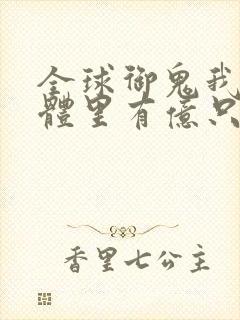 全球御鬼我
體里有億只
香里七公主